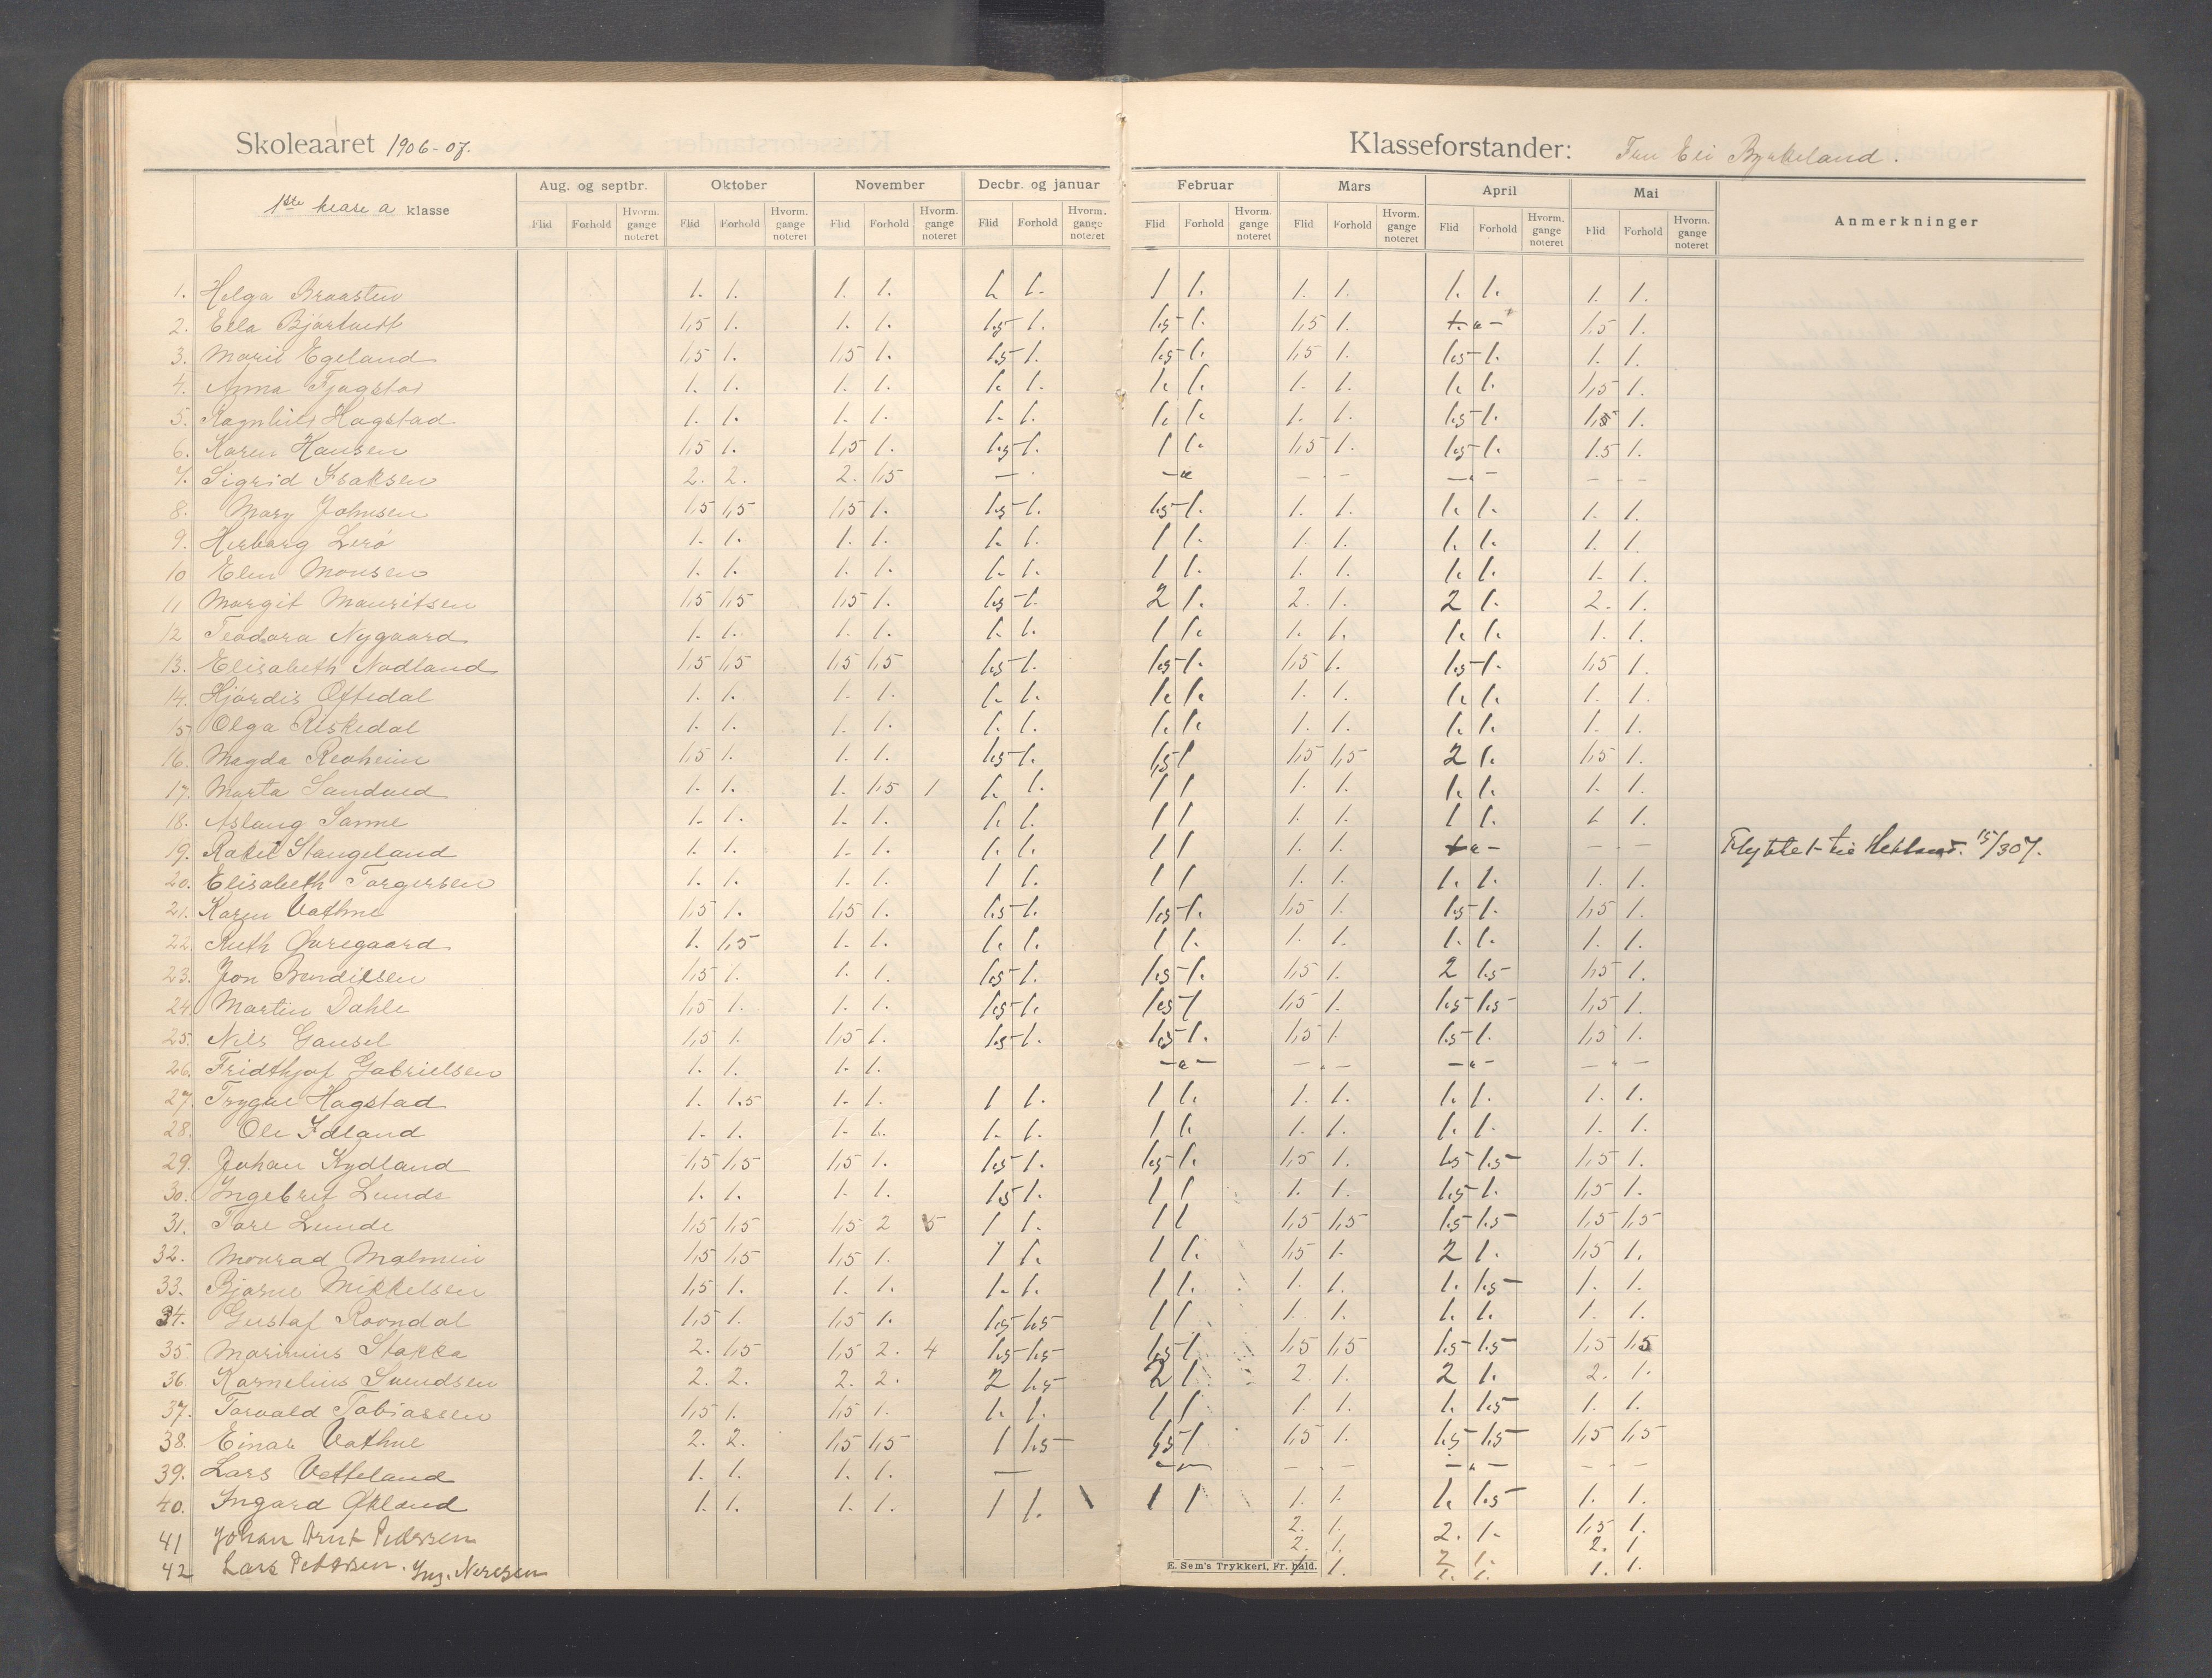 Skoleaaret 1906-07.
Klasseforstander: Byrkeland.
1ste klase a klasse
Aug. og septbr. Oktober November Decbr. og januar Februar Mars April Mai Anmerkninger
Flid Forhold Hvorm. gange noteret Flid Forhold Hvorm. gange noteret Flid Forhold Hvorm. gange noteret Flid Forhold Hvorm. gange noteret Flid Forhold Hvorm. gange noteret Flid Forhold Hvorm. gange noteret Flid Forhold Hvorm. gange noteret Flid Forhold Hvorm. gange noteret
1. Helga Braasten 1. 1. 1. 1. 1. 1. 1 1. 1. 1. 1. 1. 1. 1.
2. 1,5 1. 1. 1. 1.5 1. 1.5 1. 1,5 1. 1,5 1.
3. Marie Egeland 1,5 1. 1,5 1. 1.5 1. 1.5 1. 1,5 1. 1.5 1. 1. 1.
4. Anna 1. 1. 1. 1. 1. 1. 1. 1. 1. 1. 1. 1. 1,5 1.
5. Ragnhild Hagstad 1. 1. 1. 1. 1. 1. 1. 1. 1. 1. 1.5 1. 1,5 1.
6. Karen Hansen 1,5 1. 1,5 1. 1.5 1. 1 1. 1,5 1. 1.5 1. 1.5 1.
7. Sigrid Isaksen 2. 2. 2. 1,5 — — — - - — - — - - -
8. Mary Johnsen 1,5 1,5 1,5 1. 1.5 1. 1.5 1. 1. 1. 1. 1. 1. 1.
9. Herborg Lerø 1. 1. 1. 1. 1. 1. 1 1. 1. 1. 1. 1. 1. 1.
10 Elen Monsen 1. 1. 1. 1. 1. 1. 1 1. 1. 1. 1. 1. 1. 1.
11 Margit Mauritsen 1,5 1,5 1,5 1. 1.5 1. 2 1. 2. 1. 2 1. 2. 1.
12 Teodora Nygaard 1. 1. 1. 1. 1. 1. 1 1. 1. 1. 1. 1. 1. 1.
13. Elisabeth Nodland 1,5 1,5 1,5 1,5 1.5 1. 1.5 1. 1,5 1. 1.5 1. 1,5 1.
14. Hjórdis Oftedal 1. 1. 1. 1. 1. 1. 1. 1. 1. 1. 1. 1. 1. 1.
15 Olga Reskedal 1. 1. 1. 1. 1. 1. 1. 1. 1. 1. 1. 1. 1. 1.
16. Magda Revheim 1,5 1. 1. 1. 1.5 1. 1,5 1 1,5 1,5 2 1. 1,5 1.
17. Marta Sandved 1. 1. 1. 1,5 1 1. 1. 1 1 1. 1. 1. 1. 1. 1.
18. Aslaug Sømme 1. 1. 1. 1. 1. 1. 1 1 1. 1. 1 1. 1. 1.
19. Rakel Stangeland 1. 1. 1. 1. 1. 1. 1 1 1. 1. — - — Flyttet til Hetland. 15/3 07.
20. Elisabeth Torgersen 1. 1. 1. 1. 1 1. 1 1 1. 1. 1. 1. 1. 1.
21. Karen Vathne 1,5 1. 1,5 1. 1.5 1. 1.5 1. 1,5 1. 1.5 1. 1,5 1.
22. Ruth Øvregaard 1. 1,5 1. 1. 1. 1. 1 1. 1. 1. 1. 1. 1. 1.
23. Jon Bendiksen 1,5 1. 1. 1. 1.5 1. 1.5 1. 1,5 1. 2 1.5 1,5 1.
24 Martin Dahle 1,5 1. 1. 1. 1.5 1. 1.5 1 1,5 1. 1.5 1.5 1,5 1.
25. Nils Gausel 1,5 1. 1,5 1. 1.5 1. 1.5 1. 1,5 1. 1.5 1. 1,5 1.
26. Fridthjof Gabrielsen 1. 1. 1. 1. — — — - — — — — - —
27. Trygve Hagstad 1. 1.5 1. 1. 1 1. 1 1. 1. 1. 1. 1. 1. 1.
28. Ole Idland 1. 1. 1. 1. 1. 1. 1 1. 1. 1. 1. 1. 1. 1.
29. Johan Kydland 1,5 1,5 1,5 1. 1.5 1. 1.5 1. 1,5 1. 1.5 1.5 1,5 1.
30. Ingebret Lunde 1. 1. 1. 1. 1.5 1. 1 1 1. 1. 1.5 1. 1,5 1.
31. Tore Lunde 1,5 1,5 1,5 2 5 1 1. 1 1 1,5 1,5 1.5 1.5 1,5 1,5
32. Monrad Malmin 1,5 1,5 1,5 1. 1 1. 1 1. 1,5 1. 2 1. 1,5 1.
33. Bjarne Mikkelsen 1,5 1. 1. 1. 1. 1. 1 1. 1. 1. 1. 1.5 1. 1.
34. Gustaf Rovndal 1,5 1. 1,5 1. 1.5 1.5 1 1 1. 1. 1. 1. 1. 1.
35 Marinius Stakka 2. 1,5 1,5 2. 4 1.5 1.5 1.5 1 1,5 1,5 1.5 1.5 1,5 1,5
36 Kornelius Svendsen 2. 2. 2. 2. 2 1.5 2 1 2. 1. 2 1. 2. 1.
37. Torvald Tobiassen 1,5 1. 1,5 1. 1. 1. 1 1 1. 1. 1. 1.5 1. 1.
38. Einar Vathne 2. 2. 1,5 1,5 1 1.5 1,5 1 1,5 1. 1.5 1.5 1,5 1,5
39. Lars Vetteland 1. 1. 1. 1. — — — - - — — - — - - -
40. Ingard Økland 1. 1. 1. 1. 1 1. \ 1 1 1. 1. 1. 1.5 1. 1.
41 Johan Arnt Pedersen 2. 1. 2. 1. 1,5 1.
2. 1. 2. 1
42 Lars Pedersen. Ing. Neresen 1 1. 2 1. 1. 1.
1. 1.
E. Sem's Trykkeri, Fr. hald.